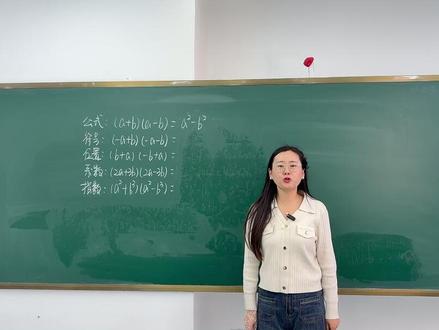 公式：(a+b)(a-b)=a²-b²
符号：(-a+b)(-a-b)=
位置：(b+a)(-b+a)=
系数：(2a+3b)(2a-3b)=
指数：(a²+b²)(a²-b²)=